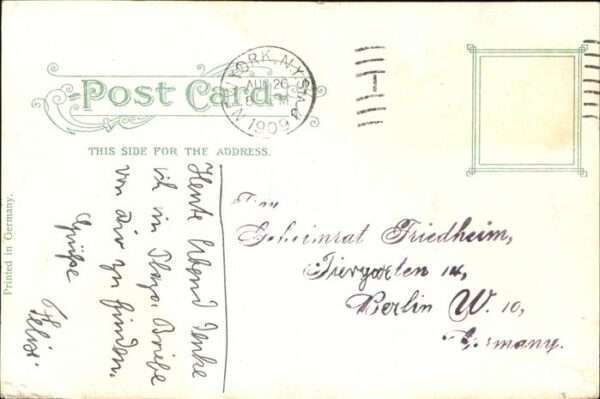 Post Card
NEW YORK, N.Y. STA. O
AUG 26
1909
1
THIS SIDE FOR THE ADDRESS.
Printed in Germany.
Heute Abend denke
ich im Plaza Briefe
von Dir zu finden.
Grüße
Felix
Frau
Geheimrat Friedheim,
Tiergarten 14,
Berlin W. 10,
Germany.